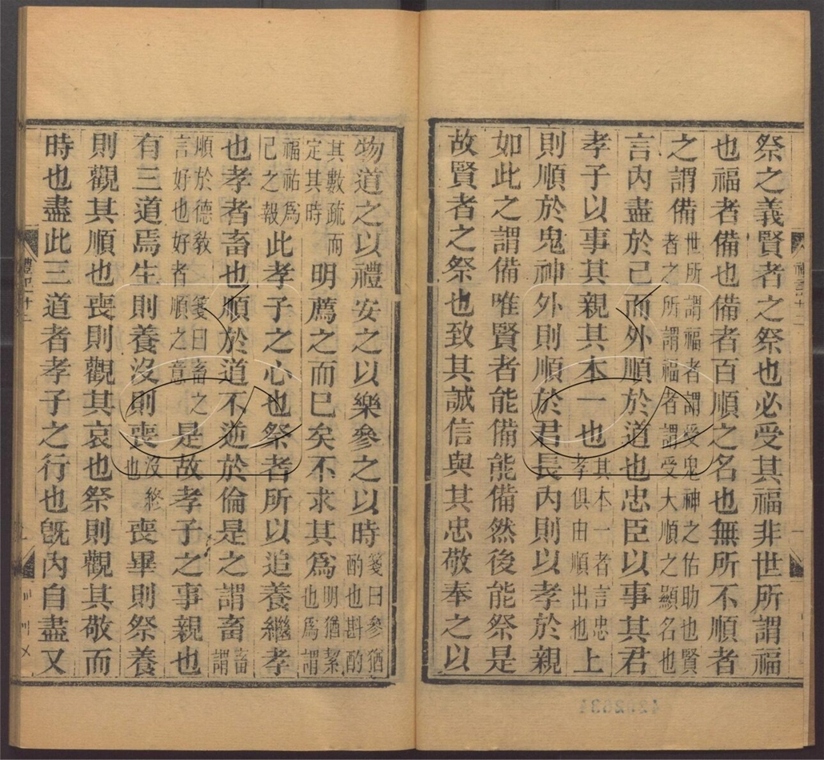 祭之義賢者之祭也必受其福非世所謂福
也福者備也備者百順之名也無所不順者
之謂備世所謂福者謂受鬼神之佑助也賢
者之所謂福者謂受大順之顯名也
言內盡於己而外順於道也忠臣以事其君
孝子以事其親其本一也其本一者言忠
孝俱由順出也上
則順於鬼神外則順於君長內則以孝於親
如此之謂備唯賢者能備能備然後能祭是
故賢者之祭也致其誠信與其忠敬奉之以
物道之以禮安之以樂參之以時箋曰參猶
酌也斟酌
其數疏而
定其時明薦之而已矣不求其爲明猶絜
也爲謂
福祐爲
己之報此孝子之心也祭者所以追養繼孝
也孝者畜也順於道不逆於倫是之謂畜畜
謂
順於德教箋曰畜之
言好也好者順之意是故孝子之事親也
有三道焉生則養沒則喪沒終
也喪畢則祭養
則觀其順也喪則觀其哀也祭則觀其敬而
時也盡此三道者孝子之行也旣內自盡又
禮記十二